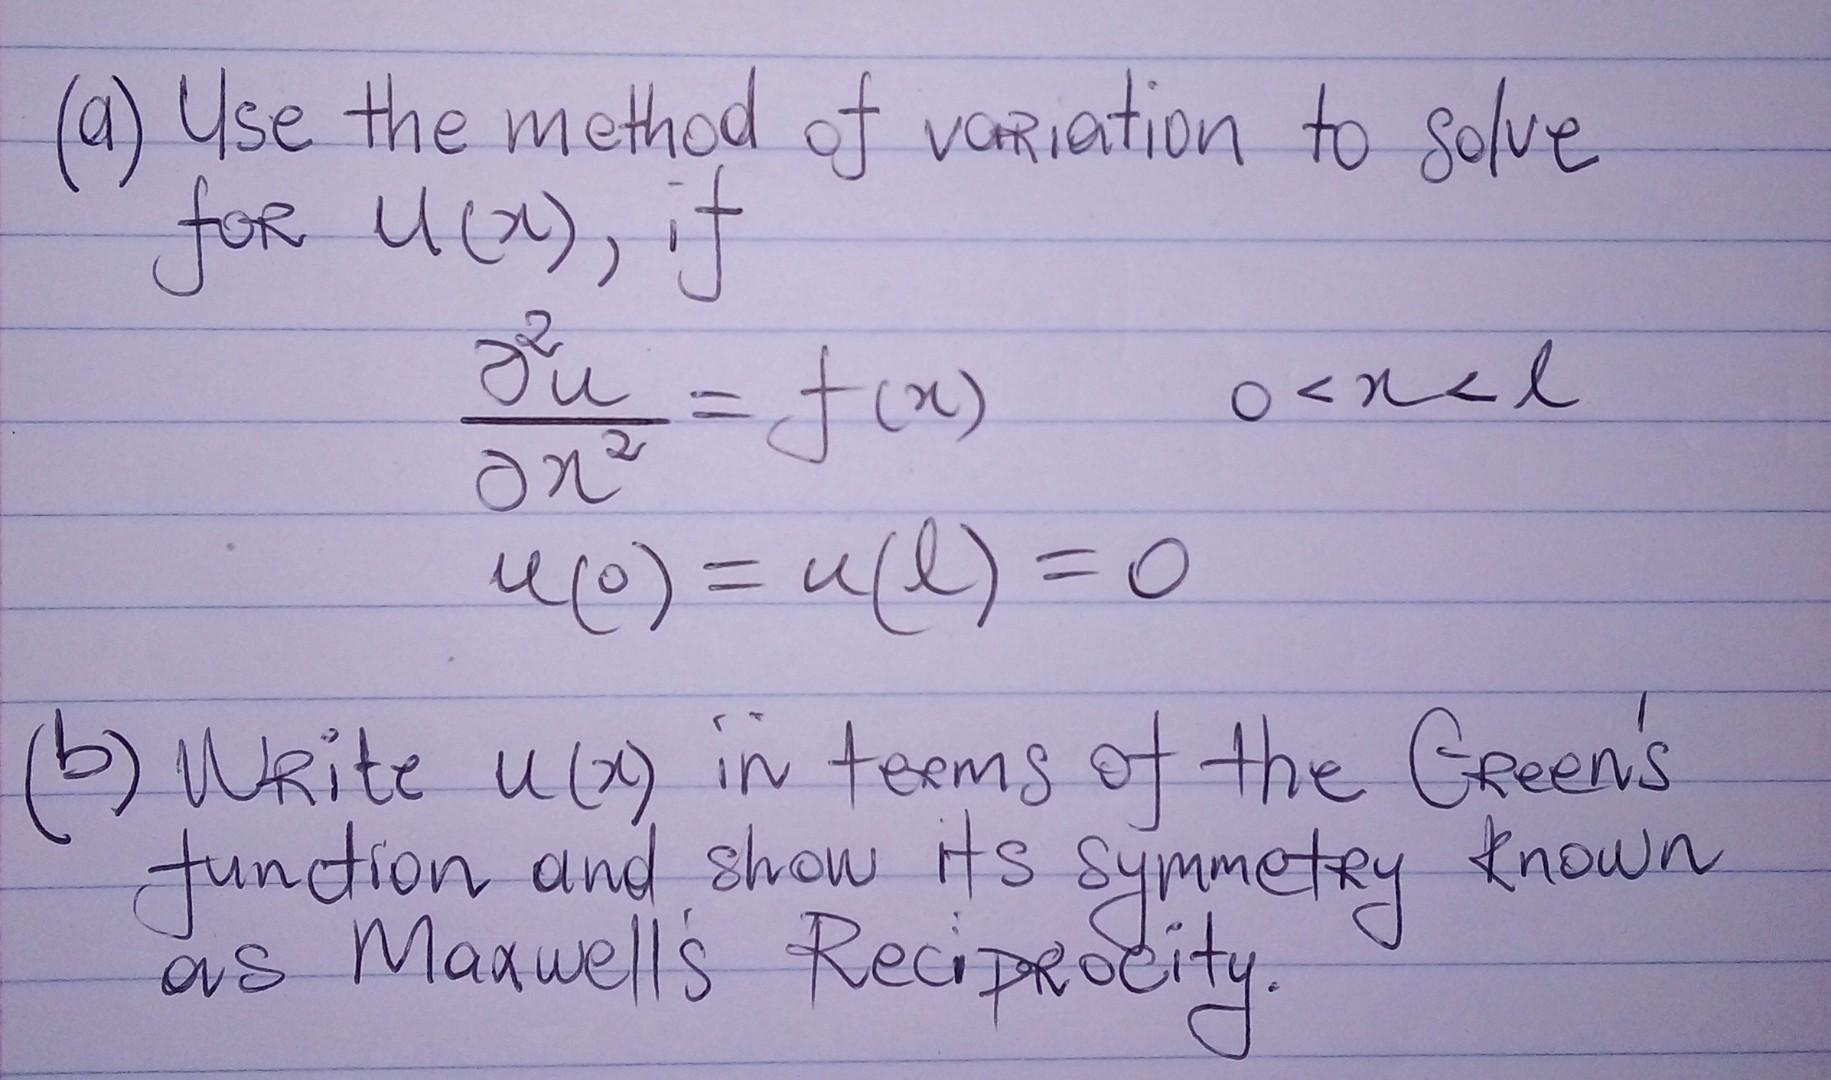 (a) Use the method of variation to solve
for u(x), if
∂²u/∂x² = f(x) 0<x<l
u(0) = u(l) = 0
(b) Write u(x) in terms of the Green's
function and show its symmetry known
as Maxwell's Reciprocity.